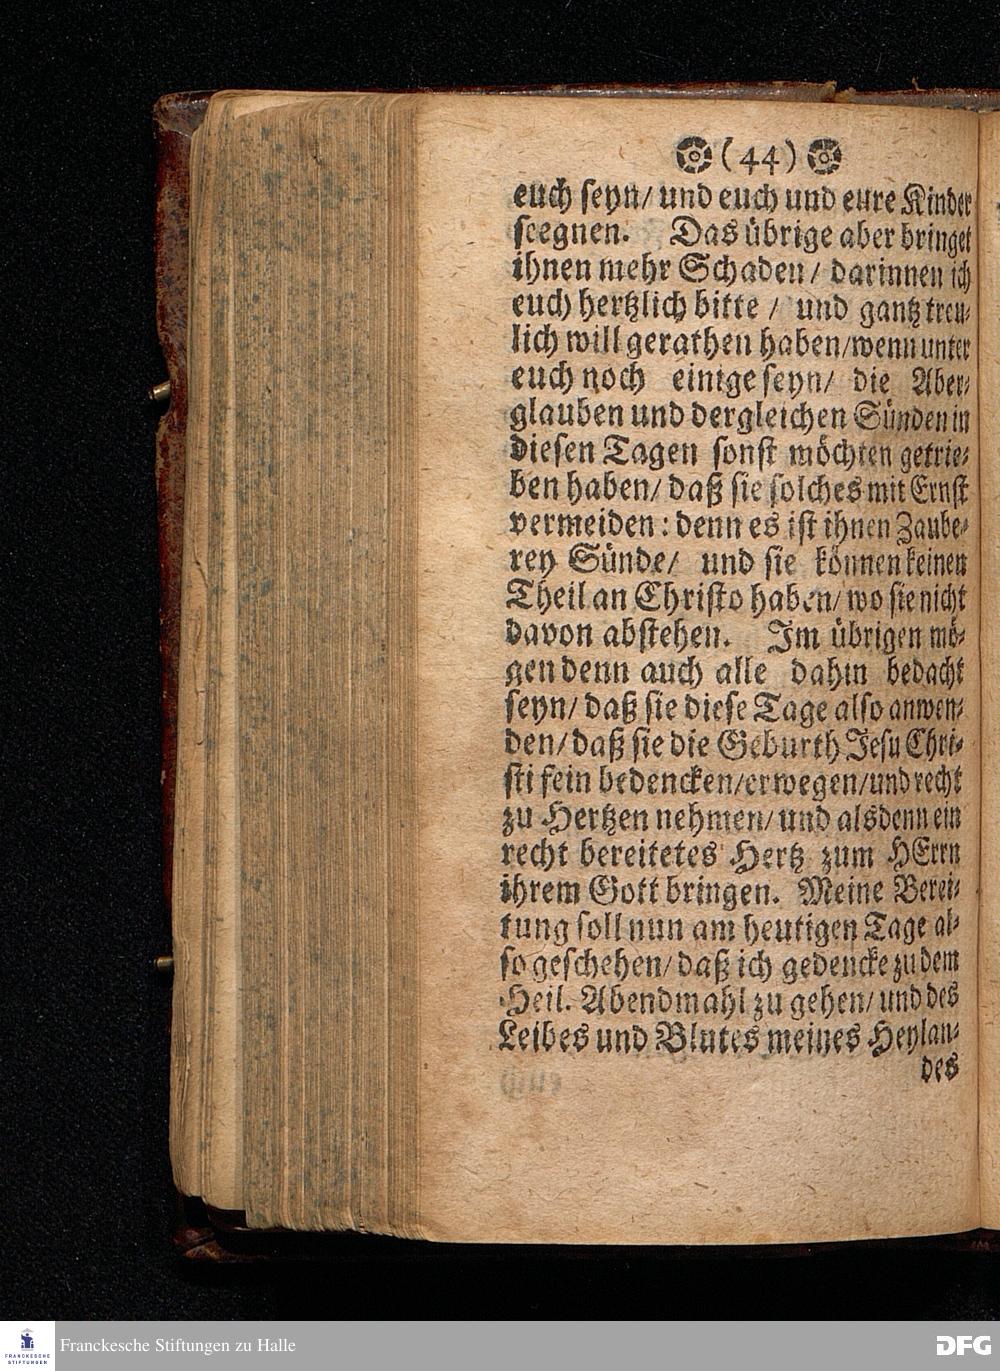 (44)
euch seyn/ und euch und eure Kinder
seegnen. Das übrige aber bringet
ihnen mehr Schaden/ darinnen ich
euch hertzlich bitte / und gantz treu-
lich will gerathen haben/wenn unter
euch noch einige seyn/ die Aber-
glauben und dergleichen Sünden in
diesen Tagen sonst möchten getrie-
ben haben/ daß sie solches mit Ernst
vermeiden: denn es ist ihnen Zaube-
rey Sünde/ und sie können keinen
Theil an Christo haben/ wo sie nicht
davon abstehen. Im übrigen mö-
gen denn auch alle dahin bedacht
seyn/ daß sie diese Tage also anwen-
den/ daß sie die Geburth Jesu Chri-
sti fein bedencken/erwegen/und recht
zu Hertzen nehmen/ und alsdenn ein
recht bereitetes Hertz zum HErrn
ihrem Gott bringen. Meine Berei-
tung soll nun am heutigen Tage al-
so geschehen/ daß ich gedencke zu dem
Heil. Abendmahl zu gehen/ und des
Leibes und Blutes meines Heylan-
des
FRANCKESCHE
STIFTUNGEN
Franckesche Stiftungen zu Halle
DFG